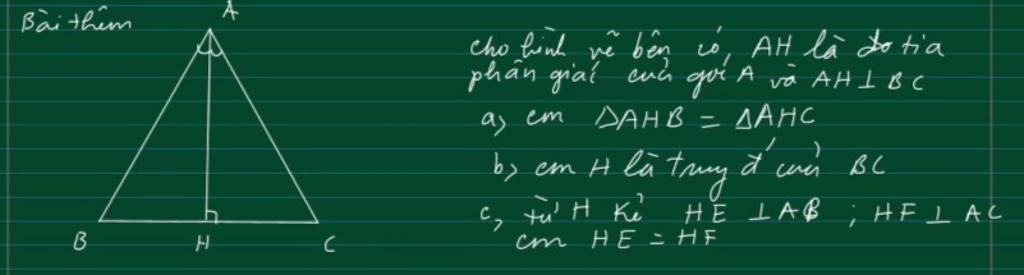 Bài thêm
A
B
H
C
cho hình vẽ bên có, AH là tia
phân giác của góc A và AH ⊥ BC
a, cm ΔAHB = ΔAHC
b, cm H là trung đ' của BC
c, từ H kẻ HE ⊥ AB ; HF ⊥ AC
cm HE = HF